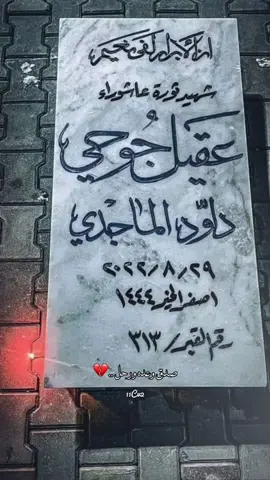 إن الأبرار لفي نعيم
شهيد ثورة عاشوراء
عقيل جُوحي
داود الماجدي
٢٠٢٢/٨/٢٩
١صفر الخير ١٤٤٤
رقم القبر/ ٣١٣
صدق وعده ورحل..💔